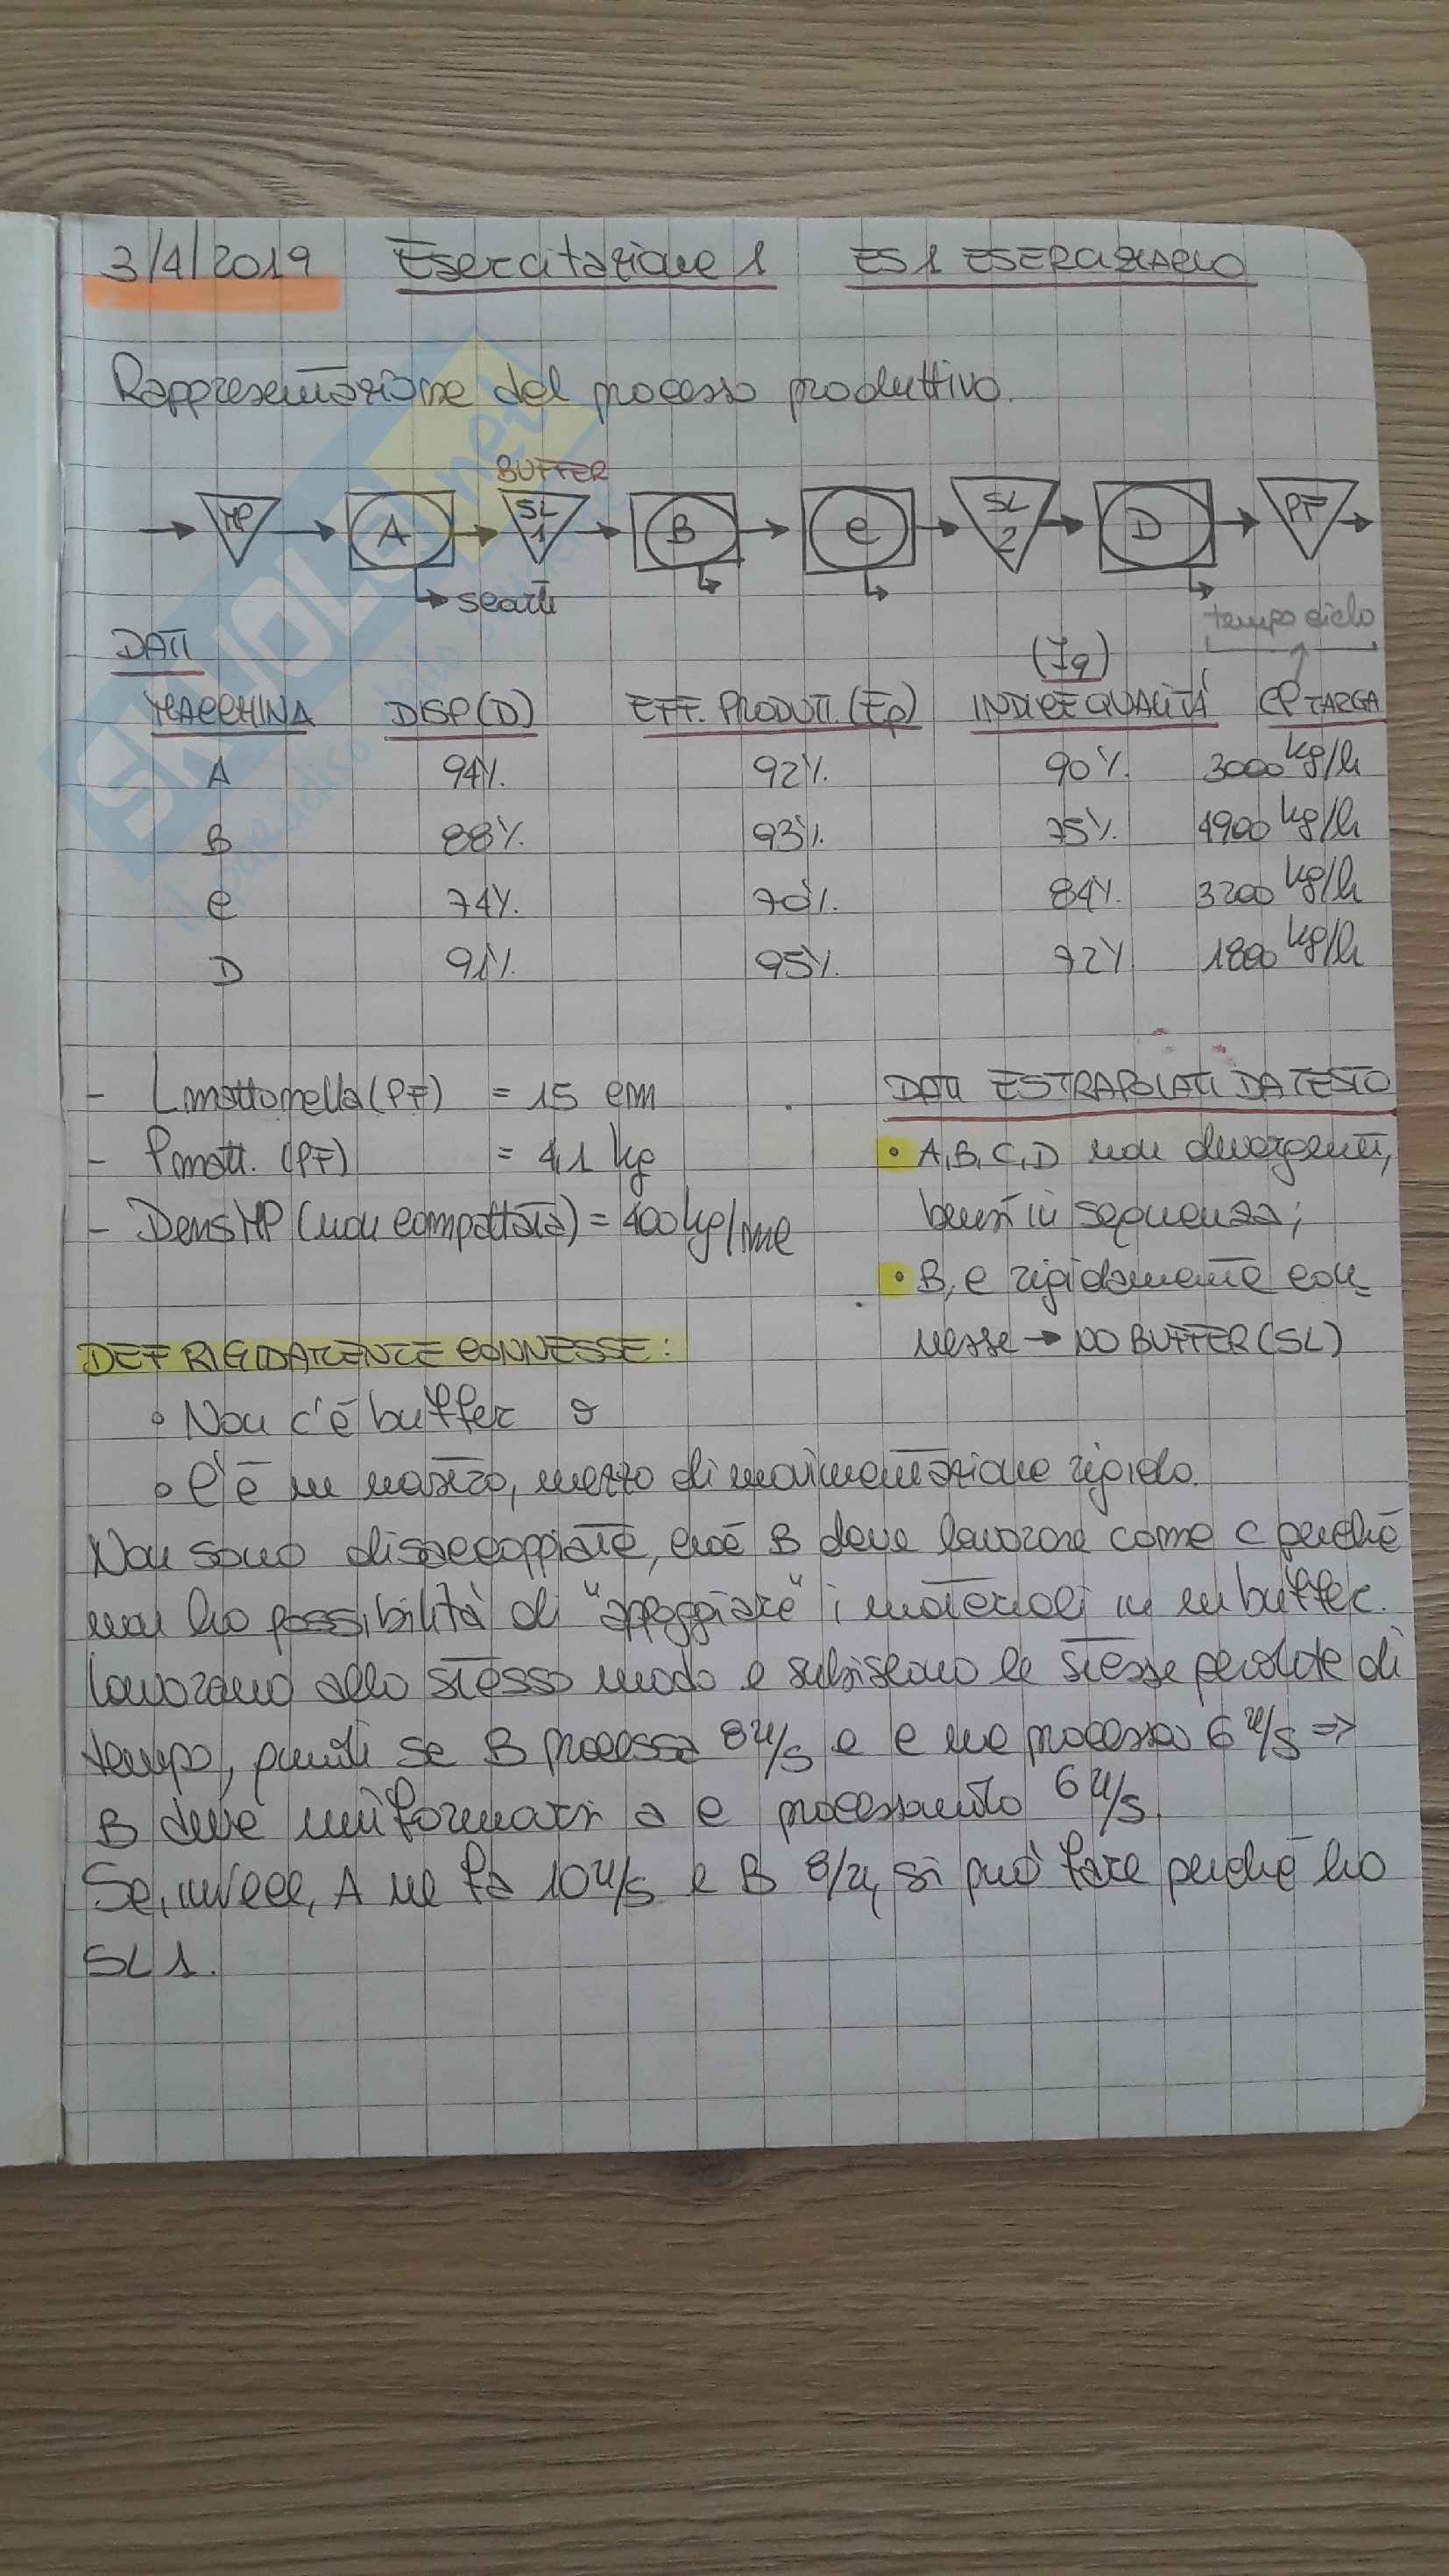 3/4/2019 Esercitazione 1 ES 1 ESERCIZIARIO
Rappresentazione del processo produttivo.
BUFFER
MP A SL 1 B C SL 2 D PF
scarti
tempo ciclo
DATI (Iq)
MACCHINA DISP(D) EFF. PRODUTT. (Ep) INDICE QUALITÁ CP TARGA
A 94% 92% 90% 3000 kg/h
B 88% 93% 75% 4900 kg/h
C 74% 70% 84% 3200 kg/h
D 91% 95% 72% 1800 kg/h
- Lmattonella (PF) = 15 cm
- Pmatt. (PF) = 4,1 kg
- Dens MP (non compattata) = 400 kg/mc
DATI ESTRAPOLATI DA TESTO
• A, B, C, D non divergenti,
bensì in sequenza;
• B, C rigidamente con-
nesse → NO BUFFER (SL)
DEF RIGIDAMENTE CONNESSE:
• Non c'è buffer o
• C'è un nastro, mezzo di movimentazione rigido.
Non sono disaccoppiate, cioè B deve lavorare come C perché
non ho possibilità di "appoggiare" i materiali in un buffer.
Lavorano allo stesso modo e subiscono le stesse perdite di
tempo, quindi se B processa 8 u/s e C ne processa 6 u/s ⇒
B deve uniformarsi a C processando 6 u/s.
Se, invece, A ne fa 10 u/s e B 8/u, si può fare perché ho
SL 1.
SKUOLA.net
il paradiso dello studente